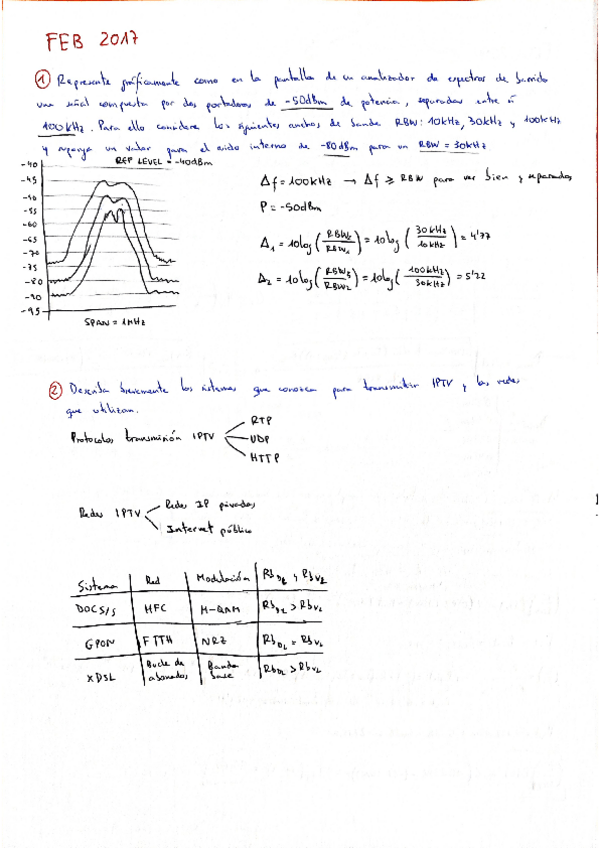 FEB 2017
① Represente gráficamente como en la pantalla de un analizador de espectros de barrido
una señal compuesta por dos portadoras de -50dBm de potencia, separadas entre sí
100kHz. Para ello considere los siguientes anchos de banda RBW: 10kHz, 30kHz y 100kHz
y suponga un valor para el ruido interno de -80dBm para un RBW = 30kHz.
REF LEVEL = -40dBm
-40
-45
-50
-55
-60
-65
-70
-75
-80
-90
-95
SPAN = 1MHz
Δf = 100kHz → Δf ≥ RBW para ver bien y separados
P = -50dBm
Δ1 = 10log(RBW2/RBW1) = 10log(30kHz/10kHz) = 4'77
Δ2 = 10log(RBW3/RBW2) = 10log(100kHz/30kHz) = 5'22
② Describa brevemente los sistemas que conozca para transmitir IPTV y las redes
que utilizan.
Protocolos transmisión IPTV
RTP
UDP
HTTP
Redes IPTV
Redes IP privadas
Internet público
Sistema Red Modulación RbDL y RbUL
DOCSIS HFC M-QAM RbDL > RbUL
GPON FTTH NRZ RbDL = RbUL
xDSL Bucle de abonados Banda base RbDL > RbUL